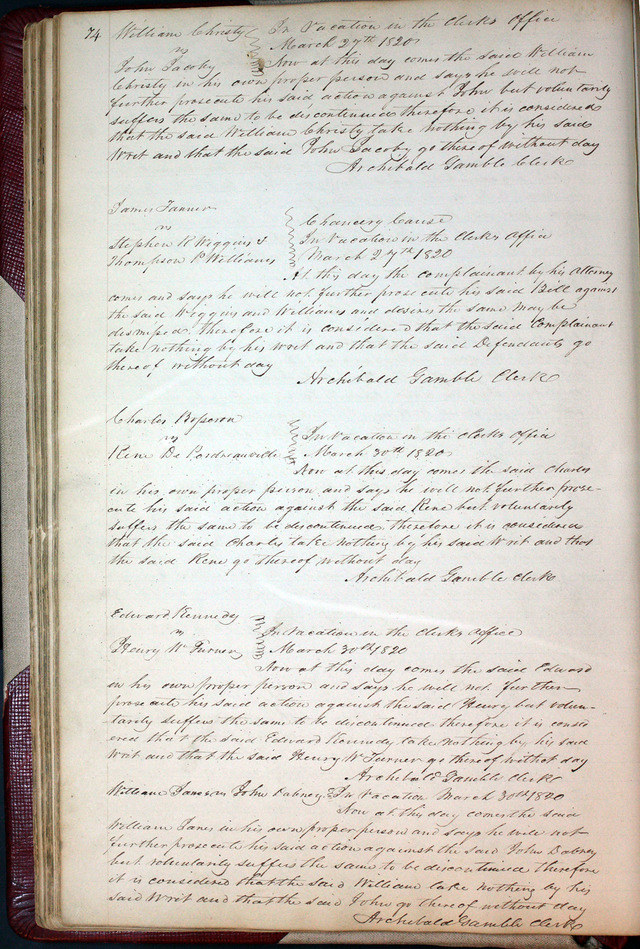 74 William Christy In Vacation in the Clerks Office
vs March 27th 1820
John Jacoby Now at this day comes the said William
Christy in his own proper person and says he will not
further prosecute his said action against John but voluntarily
suffers the same to be discontinued therefore it is considered
that the said William Christy take nothing by his said
Writ and that the said John Jacoby go thereof without day
Archibald Gamble Clerk
James Tanner Chancery Cause
vs In Vacation in the Clerks Office
Stephen R Wiggins &
Thompson P Williams March 27th 1820
At this day the complainant by his Attorney
comes and says he will not further prosecute his said Bill against
the said Wiggins and Williams and desires the same may be
dismissed therefore it is considered that the said Complainant
take nothing by his writ and that the said Defendants go
thereof without day
Archibald Gamble Clerk
Charles Bosseron
vs In Vacation in the Clerks Office
Rene De March 30th 1820
Now at this day comes the said Charles
in his own proper person and says he will not further prose-
cute his said action against the said Rene but voluntarily
suffers the same to be discontinued therefore it is considered
that the said Charles take nothing by his said Writ and that
the said Rene go thereof without day
Archibald Gamble Clerk
Edward Kennedy
vs In Vacation in the Clerks Office
Henry W Turner March 30th 1820
Now at this day comes the said Edward
in his own proper person and says he will not further
prosecute his said action against the said Henry but volun-
tarily suffers the same to be discontinued therefore it is consid
ered that the said Edward Kennedy take nothing by his said
writ and that the said Henry W Turner go thereof without day
Archibald Gamble Clerk
William Janes vs John Dabney In Vacation March 30th 1820
Now at this day comes the said
William Janes in his own proper person and says he will not
further prosecute his said action against the said John Dabney
but voluntarily suffers the same to be discontinued therefore
it is considered that the said William take nothing by his
said Writ and that the said John go thereof without day
Archibald Gamble Clerk